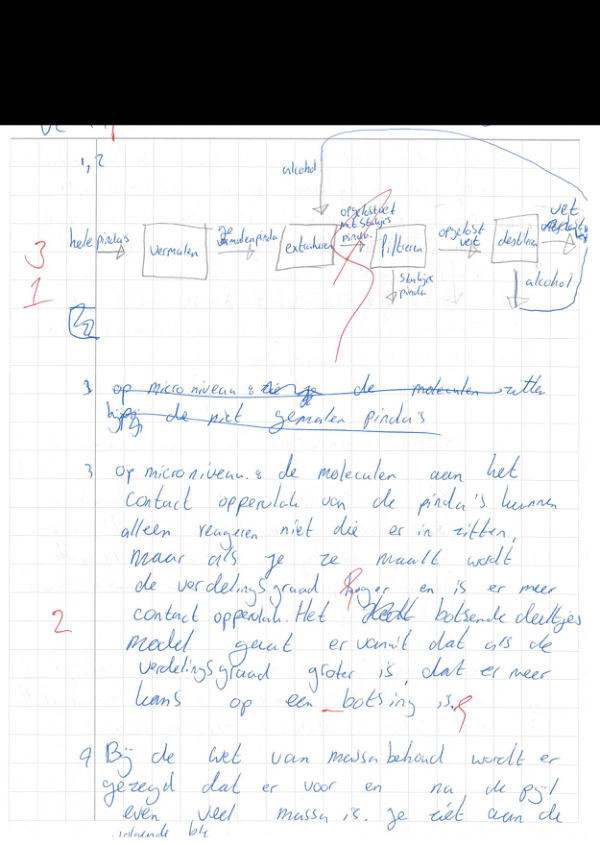 1,2
alcohol
hele pinda's
vermalen
gemalen pinda
extraheren
opgelost vet
met stukjes
pinda
filtreren
stukjes
pinda
opgelost
vet
destilleren
vet
alcohol
3
1
3 op micro niveau: de moleculen zitten
bij de niet gemalen pinda's
3 op microniveau: de moleculen aan het
contact oppervlak van de pinda's kunnen
alleen reageren niet die er in zitten,
maar als je ze maalt wordt
de verdelingsgraad hoger en is er meer
contact oppervlak. Het botsende deeltjes
2
model gaat er vanuit dat als de
verdelingsgraad groter is, dat er meer
kans op een botsing is.
9 Bij de wet van massabehoud wordt er
gezegd dat er voor en na de pijl
even veel massa is. je ziet aan de